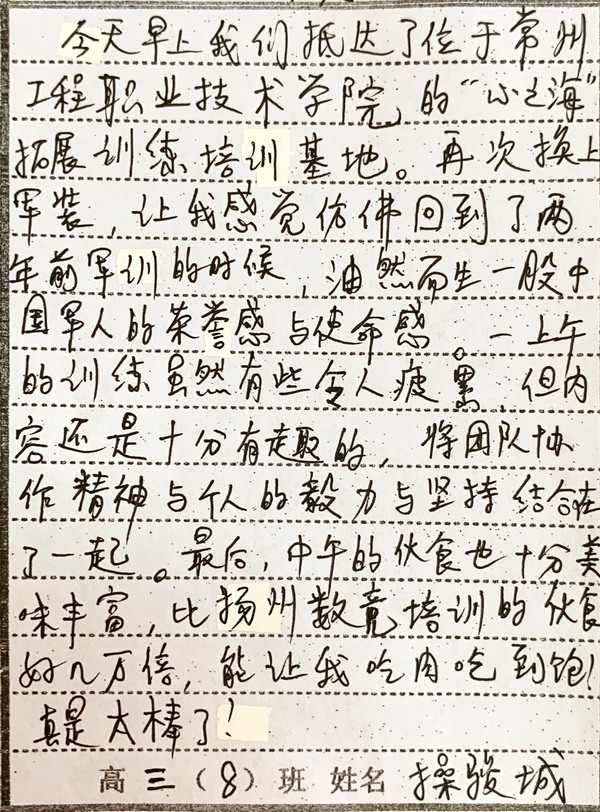 今天早上我们抵达了位于常州
工程职业技术学院的“小之海”
拓展训练培训基地。再次换上
军装，让我感觉仿佛回到了两
年前军训的时候，油然而生一股中
国军人的荣誉感与使命感。一上午
的训练虽然有些令人疲累，但内
容还是十分有趣的，将团队协
作精神与个人的毅力与坚持结合在
了一起。最后，中午的伙食也十分美
味丰富，比扬州数竞培训的伙食
好几万倍，能让我吃肉吃到饱！
真是太棒了！
高三（8）班 姓名 操骏城